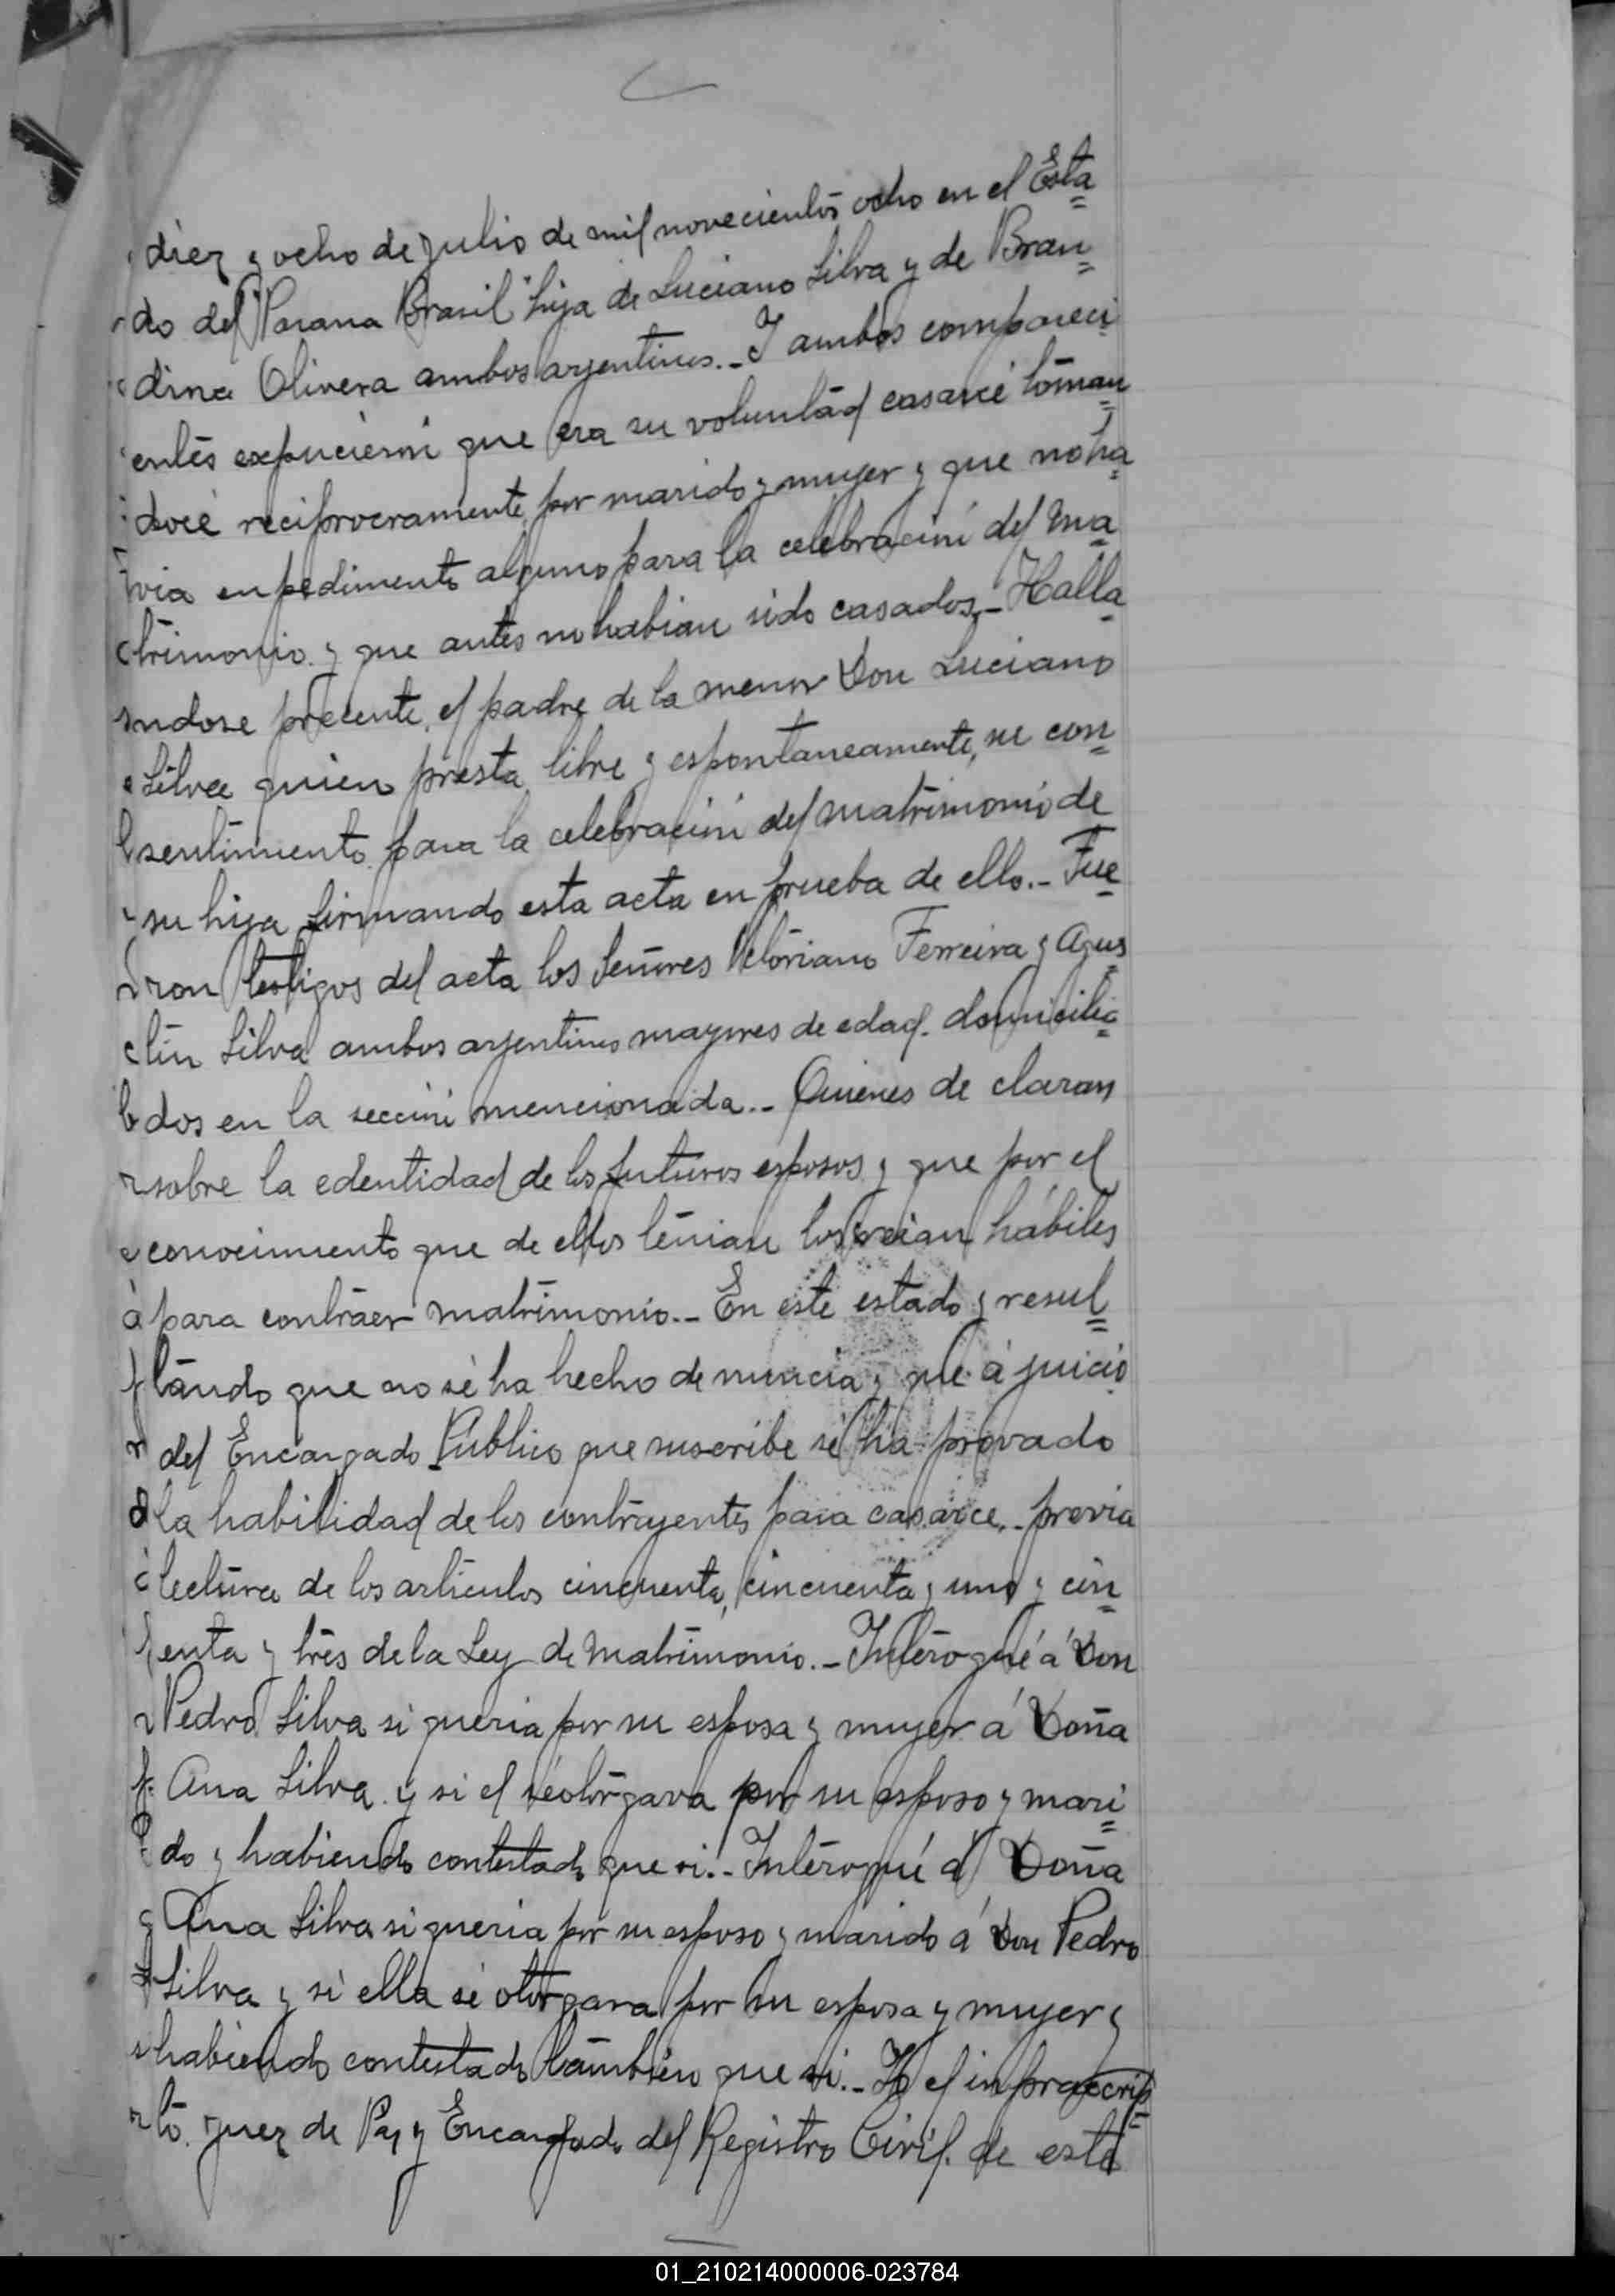 diez y ocho de julio de mil novecientos ocho en el Esta=
do del Parana Brasil hija de Luciano Silva y de Bran=
dina Olivera ambos argentinos.- I ambos compareci
entes expucieron que era su voluntad casarce toman=
doce reciprocramente por marido y mujer y que no ha=
via enpedimento alguno para la celebracion del ma=
trimonio y que antes no habian sido casados.- Halla=
ndose precente el padre de la menor Don Luciano
Silva quien presta libre y espontaneamente, su con=
sentimiento para la celebracion del matrimonio de
su hija firmando esta acta en prueba de ello.- Fue=
ron testigos del acta los Señores Vitoriano Ferreira y Agus=
tin Silva ambos argentinos mayores de edad. domicilia=
dos en la seccion mencionada.- Quienes de claran
sobre la edentidad de los futuros esposos y que por el
conocimiento que de ellos tenian los creian hábiles
para contraer matrimonio.- En este estado y resul=
tando que no se ha hecho denuncia y que á juicio
del Encargado Público que suscribe se ha provado
la habilidad de los contrayentes para casarce.- previa
lectura de los articulos cincuenta, cincuenta y uno y cin=
enta y tres de la Ley de Matrimonio.- Interogué á Don
Pedro Silva si queria por su esposa y mujer á Doña
Ana Silva y si el se otorgava por su esposo y mari=
do y habiendo contestado que si.- Interogué á Doña
Ana Silva si queria por su esposo y marido á Don Pedro
Silva y si ella se otorgava por su esposa y mujer y
habiendo contestado tambien que si.- Yo el infraescrip=
to juez de Paz y Encargado del Registro Civil. de esta
01_210214000006-023784